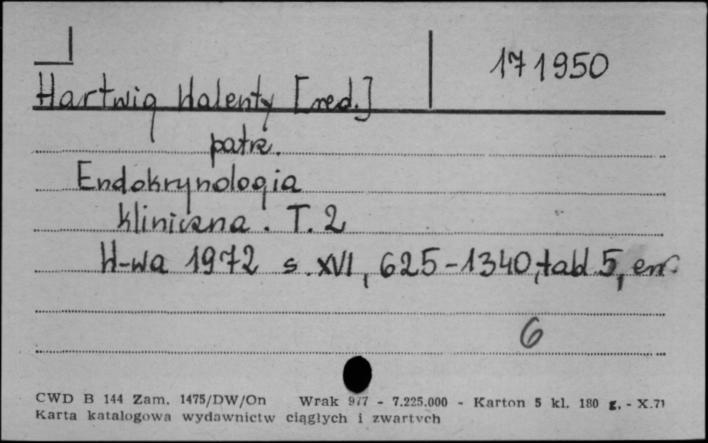 171950
Hartwig Walenty [red.]
patrz.
Endokrynologia
kliniczna. T. 2
W-wa 1972 s. XVI, 625-1340, tabl. 5, err.
6
CWD B 144 Zam. 1475/DW/On Wrak 977 - 7.225.000 - Karton 5 kl. 180 g. - X.71
Karta katalogowa wydawnictw ciągłych i zwartych